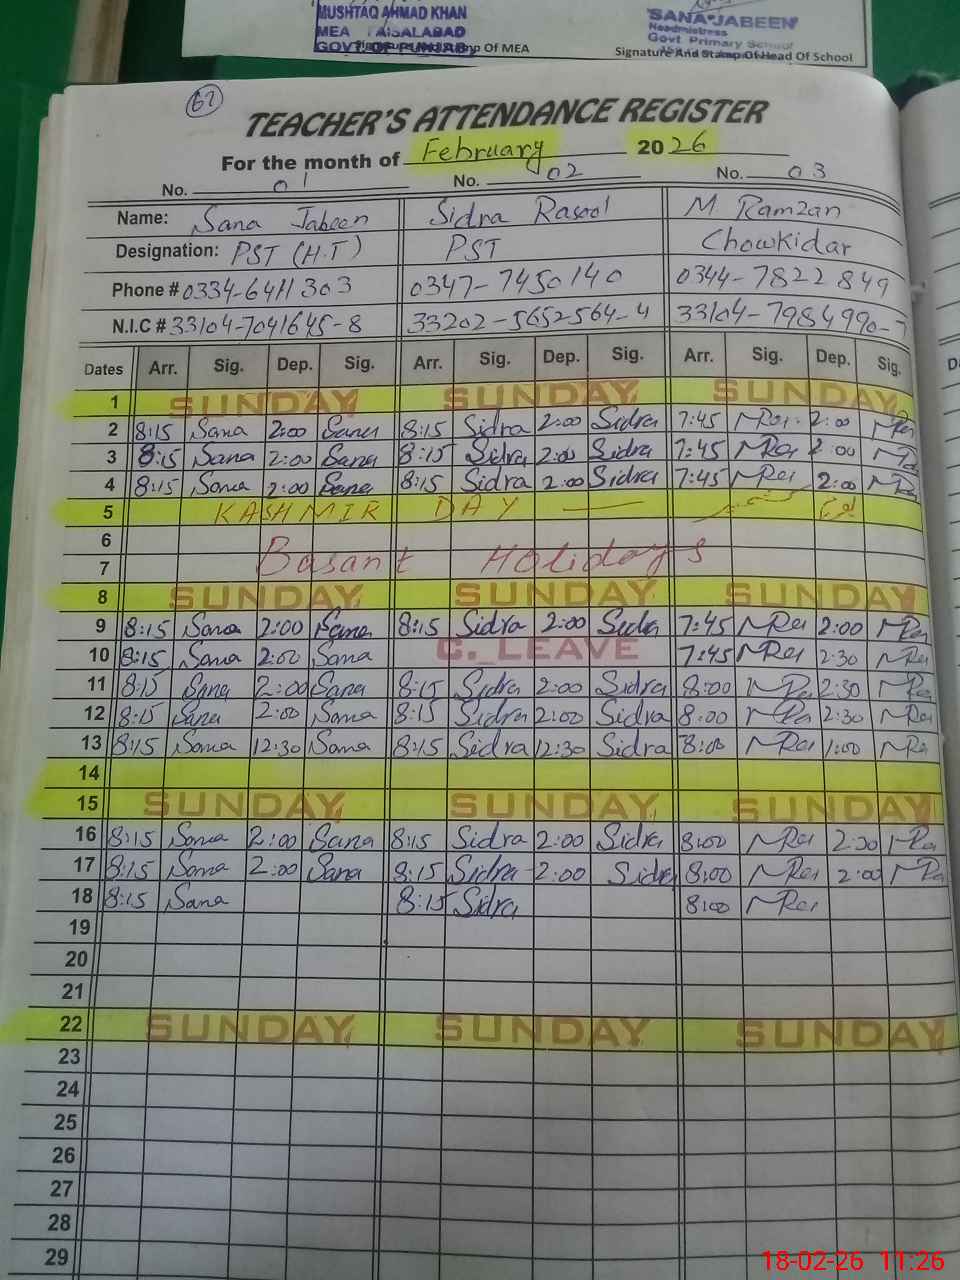 MUSHTAQ AHMAD KHAN
MEA FAISALABAD
GOVT OF PUNJAB
Of MEA
SANA JABEEN
Headmistress
Govt Primary School
Signature And Stamp Of Head Of School
62
TEACHER'S ATTENDANCE REGISTER
For the month of February 2026
No. 01 No. 02 No. 03
Name: Sana Jabeen Sidra Rasool M. Ramzan
Designation: PST (H.T) PST Chowkidar
Phone # 0334-6411303 0347-7450140 0344-7822849
N.I.C # 33104-7041645-8 33202-5652564-4 33104-7984990-7
Dates Arr. Sig. Dep. Sig. Arr. Sig. Dep. Sig. Arr. Sig. Dep. Sig.
1 SUNDAY SUNDAY SUNDAY
2 8:15 Sana 2:00 Sana 8:15 Sidra 2:00 Sidra 7:45 MRa 2:00 MRa
3 8:15 Sana 2:00 Sana 8:15 Sidra 2:00 Sidra 7:45 MRa 2:00 MRa
4 8:15 Sana 2:00 Sana 8:15 Sidra 2:00 Sidra 7:45 MRa 2:00 MRa
5 KASHMIR DAY
6
Basant Holidays
7
8 SUNDAY SUNDAY SUNDAY
9 8:15 Sana 2:00 Sana 8:15 Sidra 2:00 Sidra 7:45 MRa 2:00 MRa
10 8:15 Sana 2:00 Sana C. LEAVE 7:45 MRa 2:30 MRa
11 8:15 Sana 2:00 Sana 8:15 Sidra 2:00 Sidra 8:00 MRa 2:30 MRa
12 8:15 Sana 2:00 Sana 8:15 Sidra 2:00 Sidra 8:00 MRa 2:30 MRa
13 8:15 Sana 12:30 Sana 8:15 Sidra 12:30 Sidra 8:00 MRa 1:00 MRa
14
15 SUNDAY SUNDAY SUNDAY
16 8:15 Sana 2:00 Sana 8:15 Sidra 2:00 Sidra 8:00 MRa 2:30 MRa
17 8:15 Sana 2:00 Sana 8:15 Sidra 2:00 Sidra 8:00 MRa 2:00 MRa
18 8:15 Sana 8:15 Sidra 8:00 MRa
19
20
21
22 SUNDAY SUNDAY SUNDAY
23
24
25
26
27
28
29
18-02-26 11:26